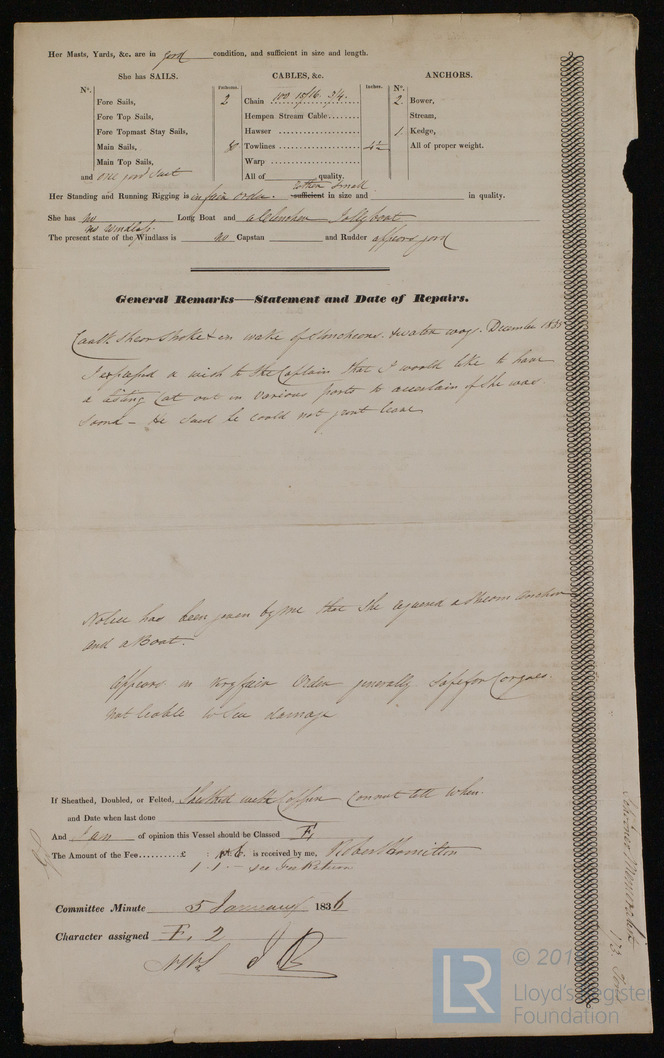 Her Masts, Yards, &c. are in good condition, and sufficient in size and length.
She has SAILS. CABLES, &c. ANCHORS.
N°. Fathoms. Inches. N°.
Fore Sails, 2 Chain 100 15/16 3/4 2 Bower,
Fore Top Sails, Hempen Stream Cable Stream,
Fore Topmast Stay Sails, Hawser 1 Kedge,
Main Sails, 80 Towlines 4½ All of proper weight.
Main Top Sails, Warp
and one good suit All of quality.
rather small
Her Standing and Running Rigging is in fair order. sufficient in size and in quality.
She has no Long Boat and a Clencher Jollyboat
no windlass
The present state of the Windlass is no Capstan and Rudder appears good
General Remarks—Statement and Date of Repairs.
Caulk Sheer Stroke & in wake of Stancheons & water way. December 1835
I expressed a wish to the Captain that I would like to have
a listing Cut out in various parts to ascertain if She was
Sound - He said he could not grant leave
Notice has been given by me that She required a Stream Anchor
and a Boat.
Appears in very fair Order generally Safe for Cargoes
not liable to Sea damage
If Sheathed, Doubled, or Felted, Sheathed with Copper Cannot tell when.
and Date when last done
And I am of opinion this Vessel should be Classed E,
The Amount of the Fee £ is received by me, Robert
1 . 1 . - see Fee Return
Committee Minute 5 January 1836
Character assigned E. 2
© 201
LR
Lloyd's Register
Foundation